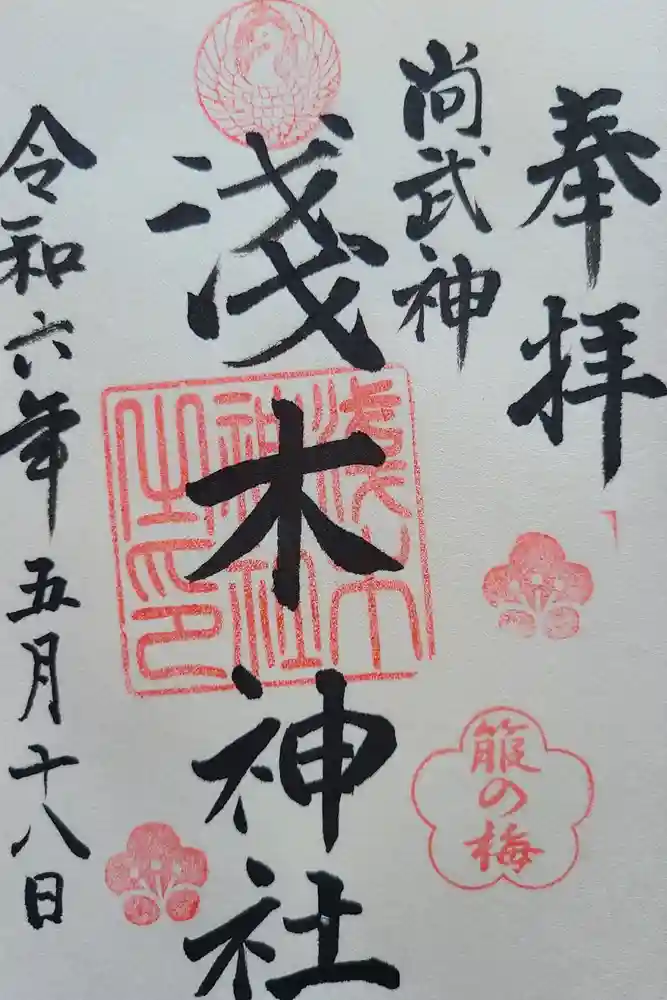 奉拝
尚武神
淺木神社
淺木神社之印
箙の梅
令和六年五月十八日